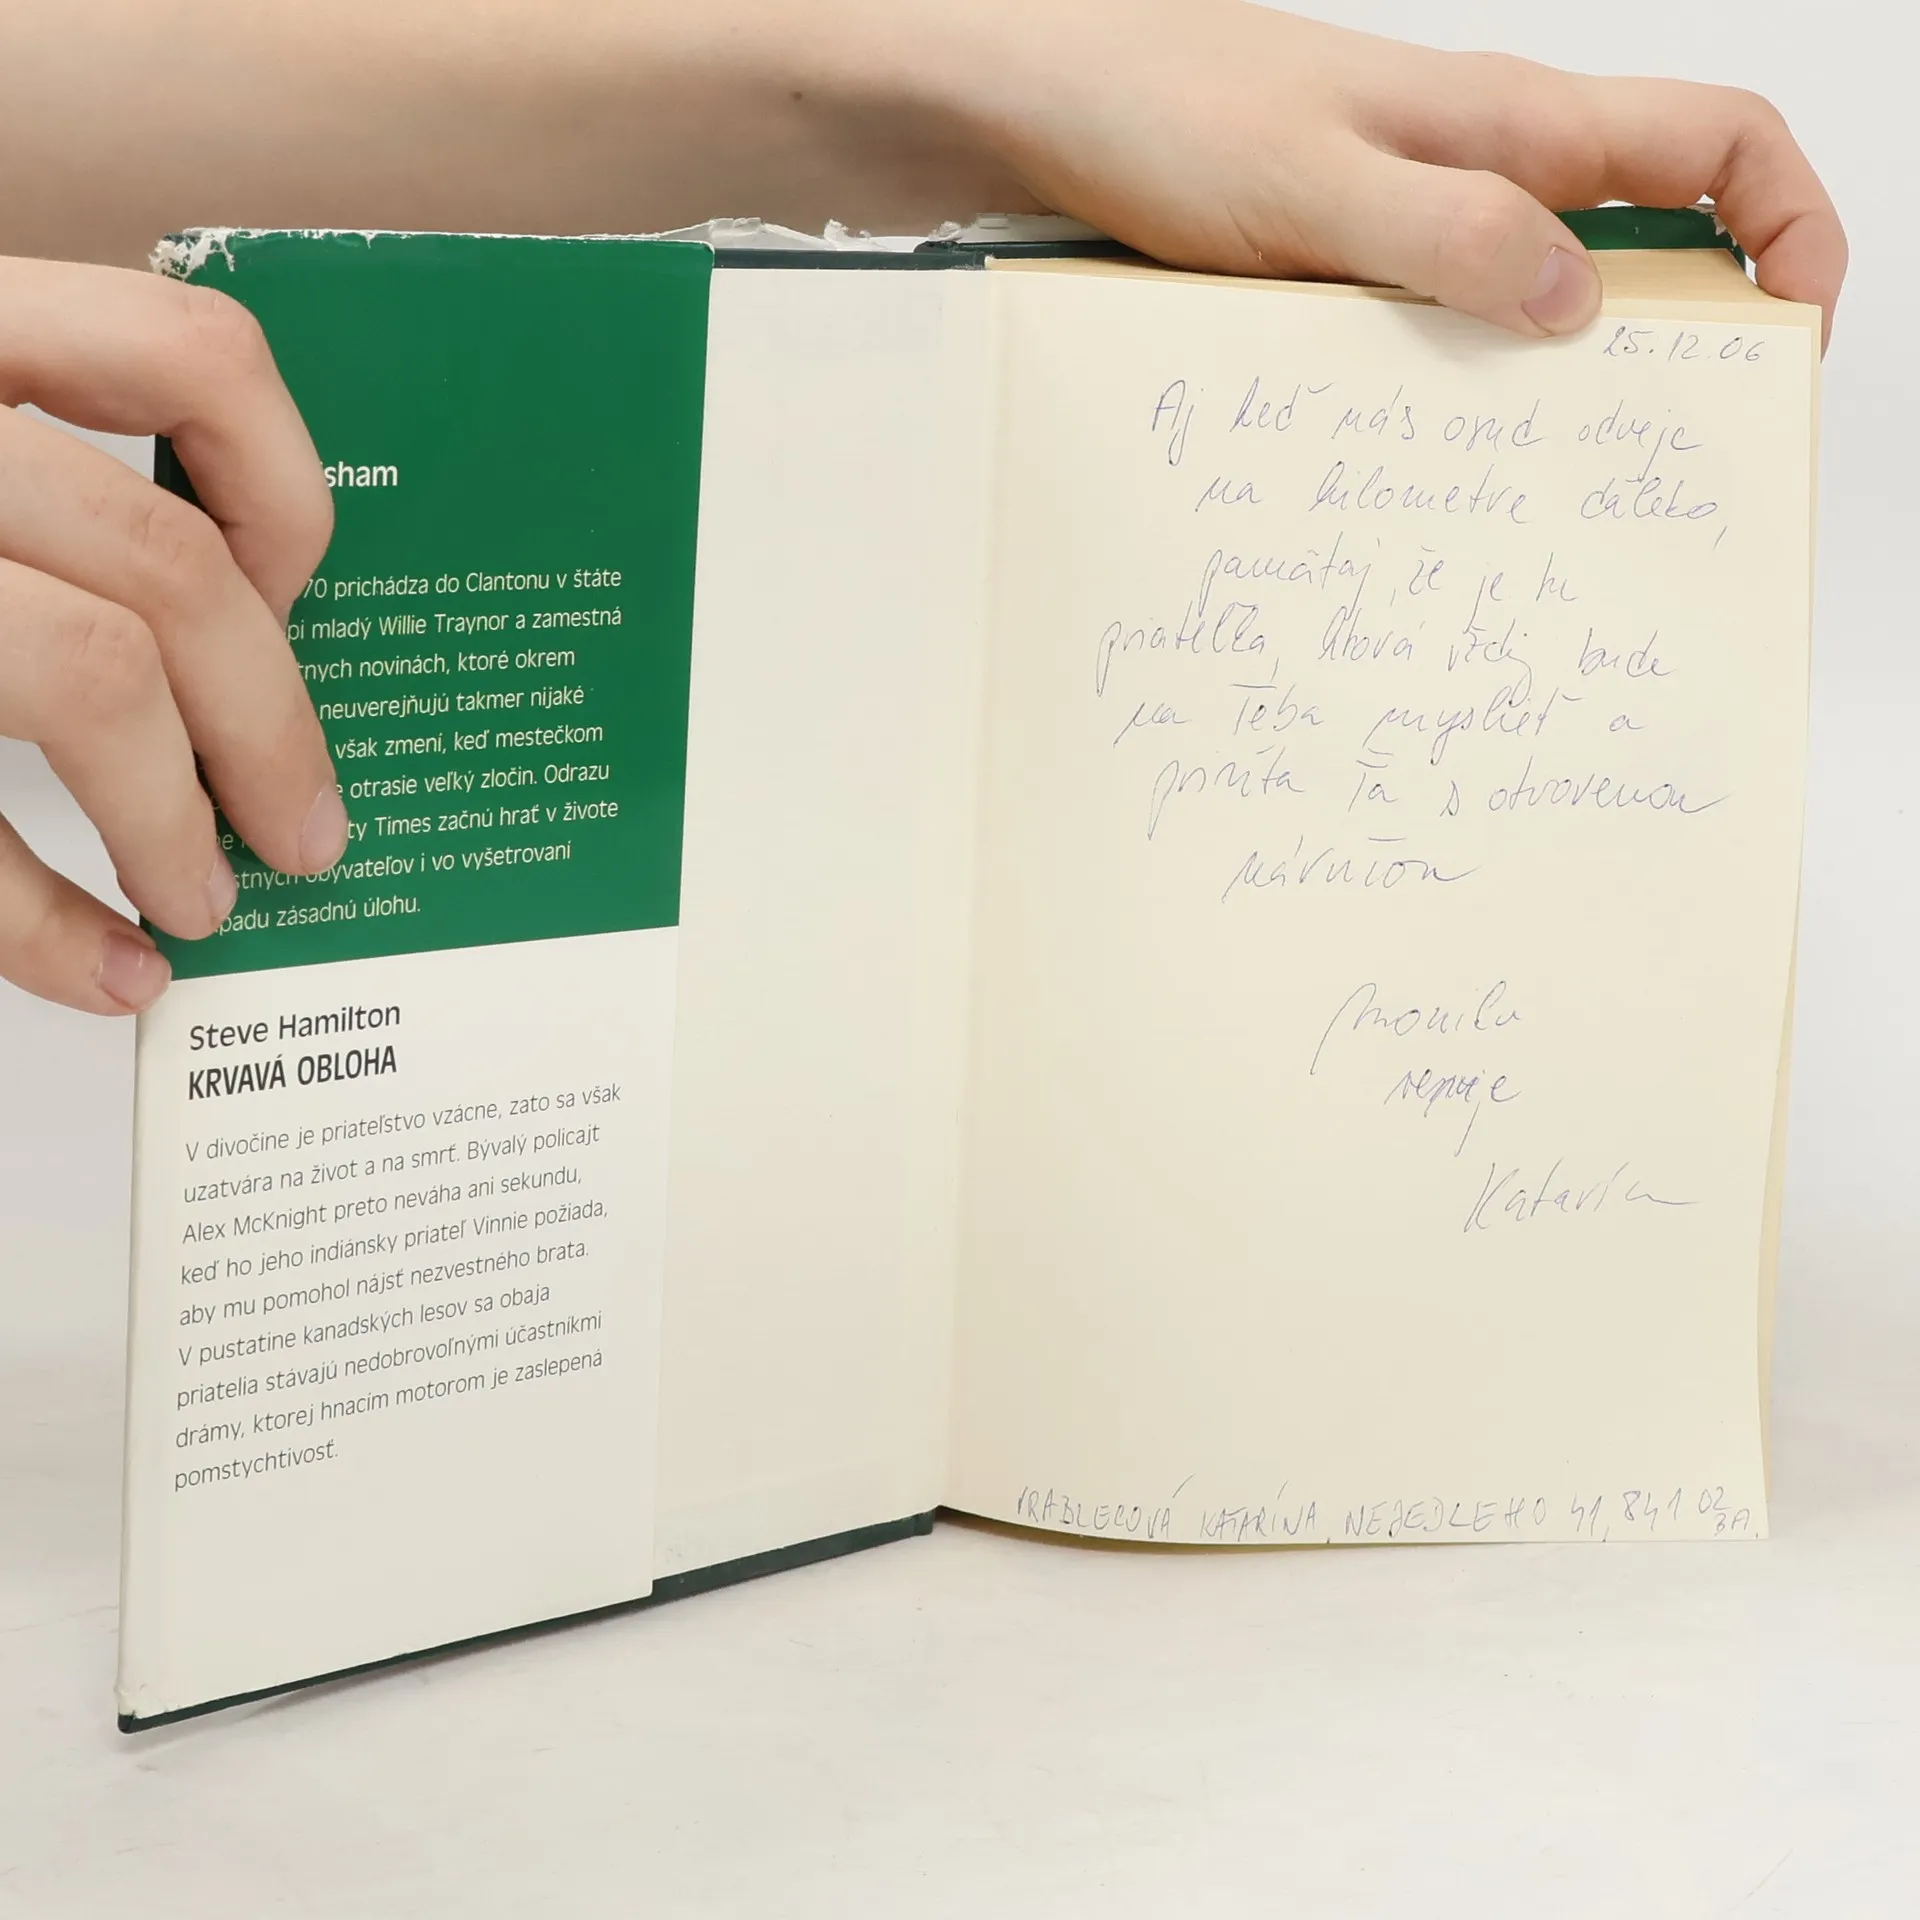 sham
70 prichádza do Clantonu v štáte
pi mladý Willie Traynor a zamestná
tnych novinách, ktoré okrem
neuverejňujú takmer nijaké
však zmení, keď mestečkom
e otrasie veľký zločin. Odrazu
ty Times začnú hrať v živote
stnych obyvateľov i vo vyšetrovaní
padu zásadnú úlohu.
Steve Hamilton
KRVAVÁ OBLOHA
V divočine je priateľstvo vzácne, zato sa však
uzatvára na život a na smrť. Bývalý policajt
Alex McKnight preto neváha ani sekundu,
keď ho jeho indiánsky priateľ Vinnie požiada,
aby mu pomohol nájsť nezvestného brata.
V pustatine kanadských lesov sa obaja
priatelia stávajú nedobrovoľnými účastníkmi
drámy, ktorej hnacím motorom je zaslepená
pomstychtivosť.
25.12.06
Aj keď nás osud odveje
na kilometre ďaleko,
pamätaj, že je tu
priateľka, ktorá vždy bude
na Teba myslieť a
privíta Ťa s otvorenou
náručou
Monika
venuje
Katarína
VRABLECOVÁ KATARÍNA, NEJEDLEHO 41, 841 02
BA.